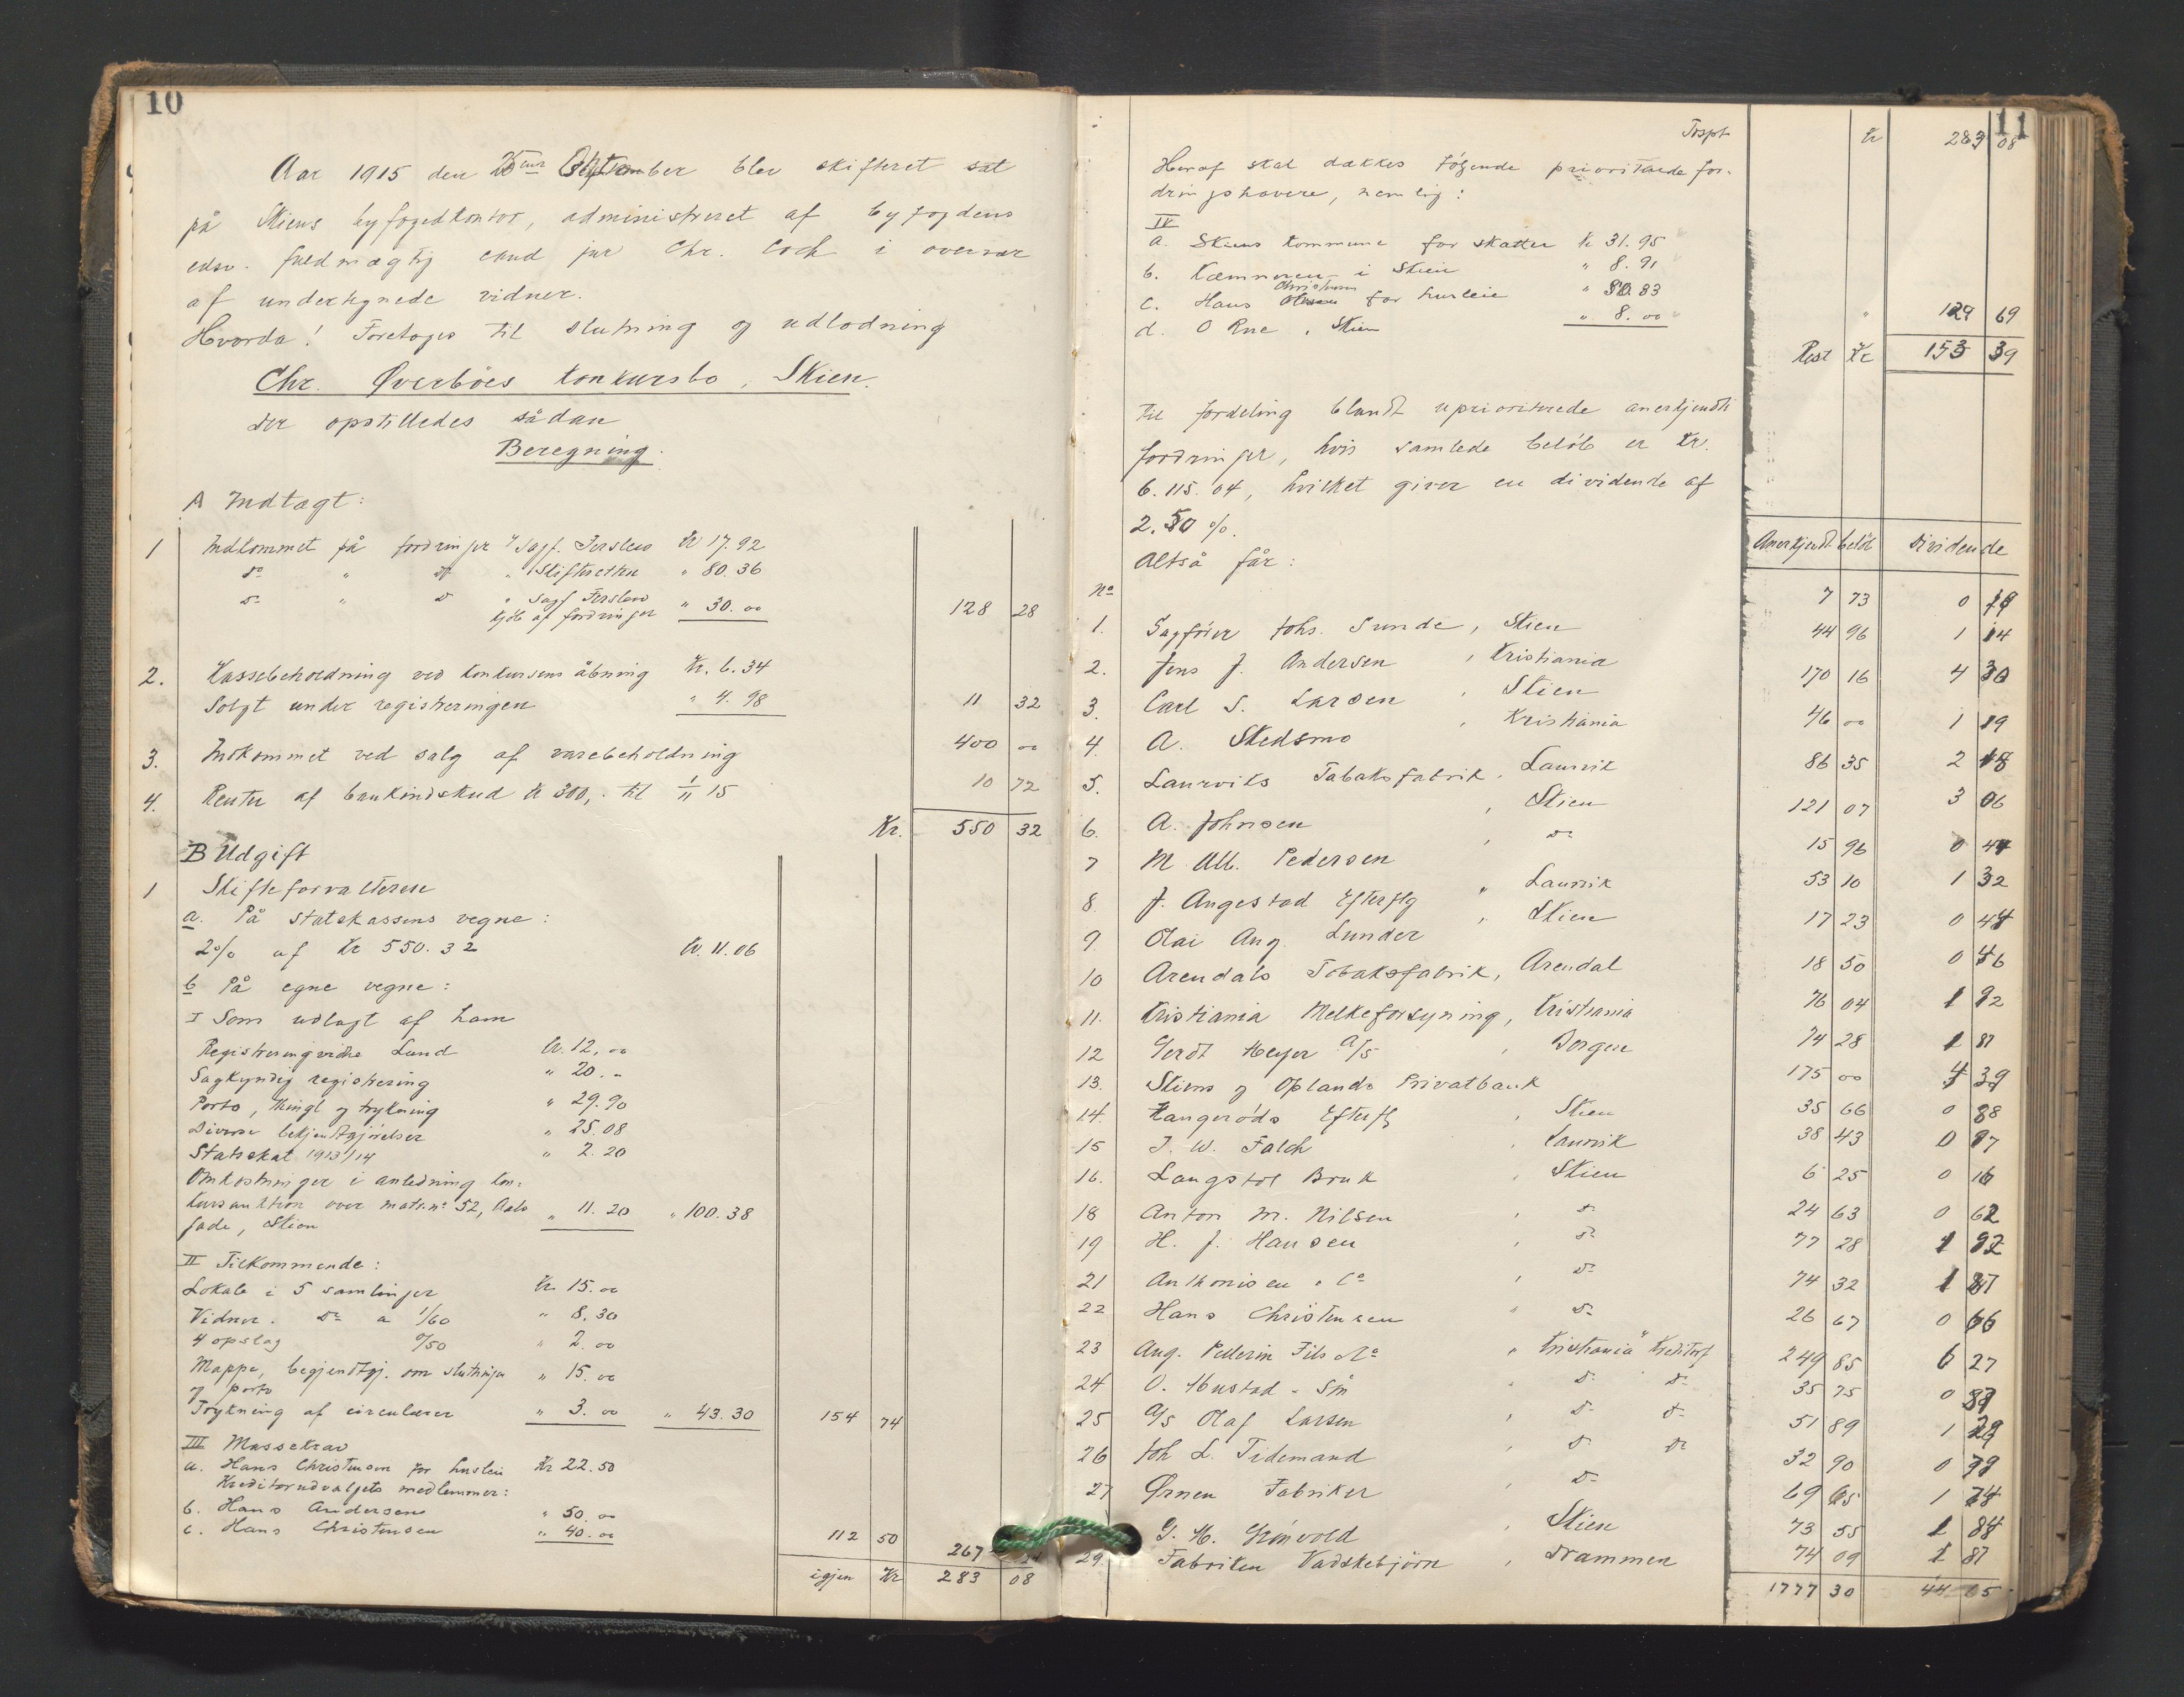 10
Aar 1915 den 25de Oktober blev skifteret sat
på Skiens byfogedkontor, administreret af byfogdens
edsv. fuldmægtig cand jur Chr. Coch i overvær
af undertegnede vidner.
Hvorda! Foretoges til slutning og udlodning
Chr. Øverböes konkursbo, Skien.
der opstilledes sådan
Beregning.
A Indtægt:
1 Indkommet på fordringer v/ Sagf. Ferslew Kr 17.92
do " do " Skifteretten " 80.36
do " do " Sagf Ferslew
kjöb af fordringer " 30.00 128 28
2. Kassebeholdning ved konkursens åbning Kr. 6.34
Solgt under registreringen " 4.98 11 32
3. Indkommet ved salg af varebeholdning 400 00
4. Renter af bankindskud kr 300,- til 1/11 15 10 72
Kr. 550 32
B Udgift
1 Skifteforvalteren
a. På statskassens vegne:
2% af Kr 550.32 Kr. 11.06
b På egne vegne:
I Som udlagt af ham
Registreringvidne Lund Kr. 12,00
Sagkyndig registrering " 20.-
Porto, thingl og trykning " 29.90
Diverse bekjendtgjörelser " 25.08
Statsskat 1913/14 " 2.20
Omkostninger i anledning kon-
kursauktion over matr. no 52,
gade, Skien " 11.20 " 100.38
II Tilkommende:
Lokale i 5 samlinger Kr. 15.00
Vidner. do a 1/60 " 8.30
4 opslag 0/50 " 2.00
Mappe, begjendtgj. om slutninger
og porto " 15.00
Trykning af circulærer " 3.00 " 43.30 154 74
III Massekrav
a. Hans Christensen for husleie Kr 22.50
Kreditorudvalgets medlemmer:
b. Hans Andersen " 50.00
c. Hans Christensen " 40.00 112 50 267 24
igjen Kr 283 08
11
Trspt Kr 283 08
Heraf skal dækkes følgende prioriterede for-
dringshavere, nemlig:
IV
a. Skiens kommune for skatter Kr 31.95
b. Kæmneren i Skien " 8.91
c. Hans Christensen for husleie " 80.83
d. O Rue, Skien " 8.00 " 129 69
Rest Kr 153 39
til fordeling blandt uprioriterede anerkjendte
fordringer, hvis samlede beløb er Kr.
6.115.04, hvilket giver en dividende af
2.50 %.
Anerkjendt beløb Dividende
Altså får:
No
1. Sagfører Johs. Sunde, Skien 7 73 0 19
2. Jens J. Andersen, Kristiania 44 96 1 14
3. Carl S. Larsen, Skien 170 16 4 30
4. A. Skedsmo, Kristiania 46 00 1 19
5. Laurviks Tabaksfabrik, Laurvik 86 35 2 18
6. A. Johnsen, Skien 121 07 3 06
7 M. Alb. Pedersen, do 15 96 0 41
8. J. Angestad Efterflg " Laurvik 53 10 1 32
9. Olai Aug. Lunder, Skien 17 23 0 44
10 Arendals Tobaksfabrik, Arendal 18 50 0 46
11. Kristiania Melkeforsyning, Kristiania 76 04 1 92
12 Gerdt Meyer A/S, Bergen 74 28 1 87
13. Skiens og Oplands Privatbank 175 00 4 39
14. Langerøds Efterflg, Skien 35 66 0 88
15 I. W. Falch, Laurvik 38 43 0 97
16. Langstol Bruk, Skien 6 25 0 16
18 Anton M. Nilsen, do 24 63 0 62
19 H. J. Hansen, do 77 28 1 92
21 Anthonisen & Co, do 74 32 1 87
22 Hans Christensen " do 26 67 0 66
23 Aug. Pellerin Fils & Co " Kristiania Kreditorf 249 85 6 27
24 O. Mustad & Søn " do do 35 75 0 89
25 A/S Olaf Larsen, do do 51 89 1 29
26 Joh L. Tidemand, do do 32 90 0 79
27 Ørnen Fabriker, do 69 65 1 74
G. H. Grönvold, Skien 73 55 1 84
29. Fabriken Vadskebjørn, Drammen 74 09 1 87
1777 30 44 65